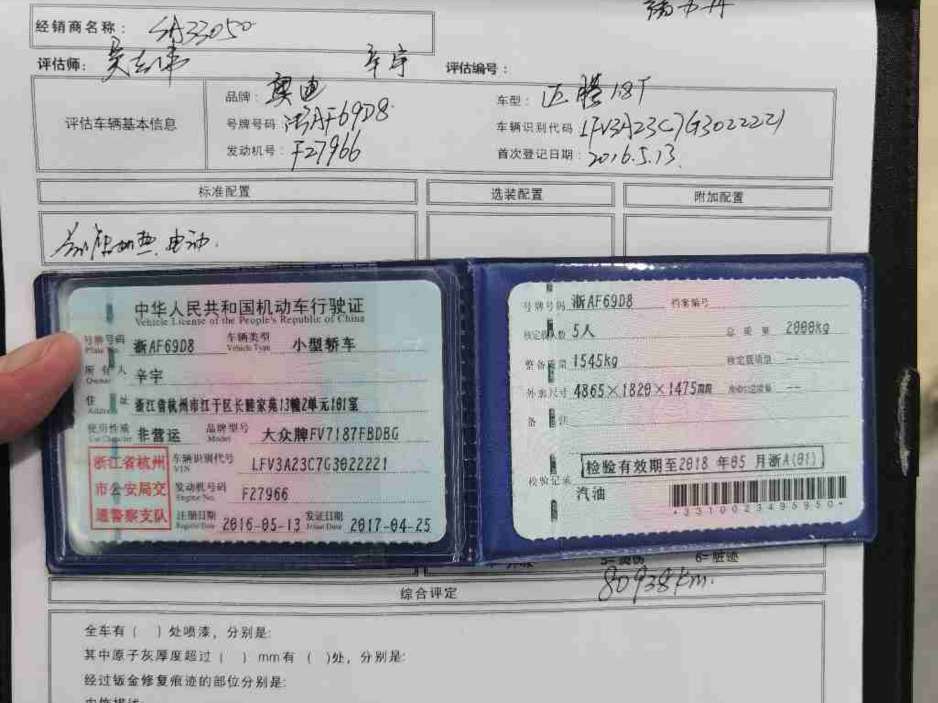 经销商名称: SA33050
评估师: 辛宇 评估编号:
评估车辆基本信息
品牌: 奥迪 车型: 迈腾18T
号牌号码 浙AF69D8 车辆识别代码 LFV3A23C7G3022221
发动机号: F27966 首次登记日期: 2016.5.13.
标准配置 选装配置 附加配置
加热 电动.
中华人民共和国机动车行驶证
Vehicle License of the People's Republic of China
号牌号码 浙AF69D8 车辆类型 小型轿车
Plate No. Vehicle Type
所有人 辛宇
Owner
住址 浙江省杭州市江干区长睦家苑13幢2单元101室
Address
使用性质 非营运 品牌型号 大众牌FV7187FBDBG
Use Character Model
浙江省杭州市公安局交通警察支队
车辆识别代号 LFV3A23C7G3022221
VIN
发动机号码 F27966
Engine No.
注册日期 2016-05-13 发证日期 2017-04-25
Register Date Issue Date
号牌号码 浙AF69D8 档案编号
核定载人数 5人 总质量 2000kg
整备质量 1545kg 核定载质量 --
外廓尺寸 4865×1820×1475 --
备注
检验有效期至2018年05月浙A(01)
检验记录
汽油
*3310023495950*
80938km.
综合评定
全车有( )处喷漆，分别是:
其中原子灰厚度超过( )mm有( )处，分别是:
经过钣金修复痕迹的部位分别是: